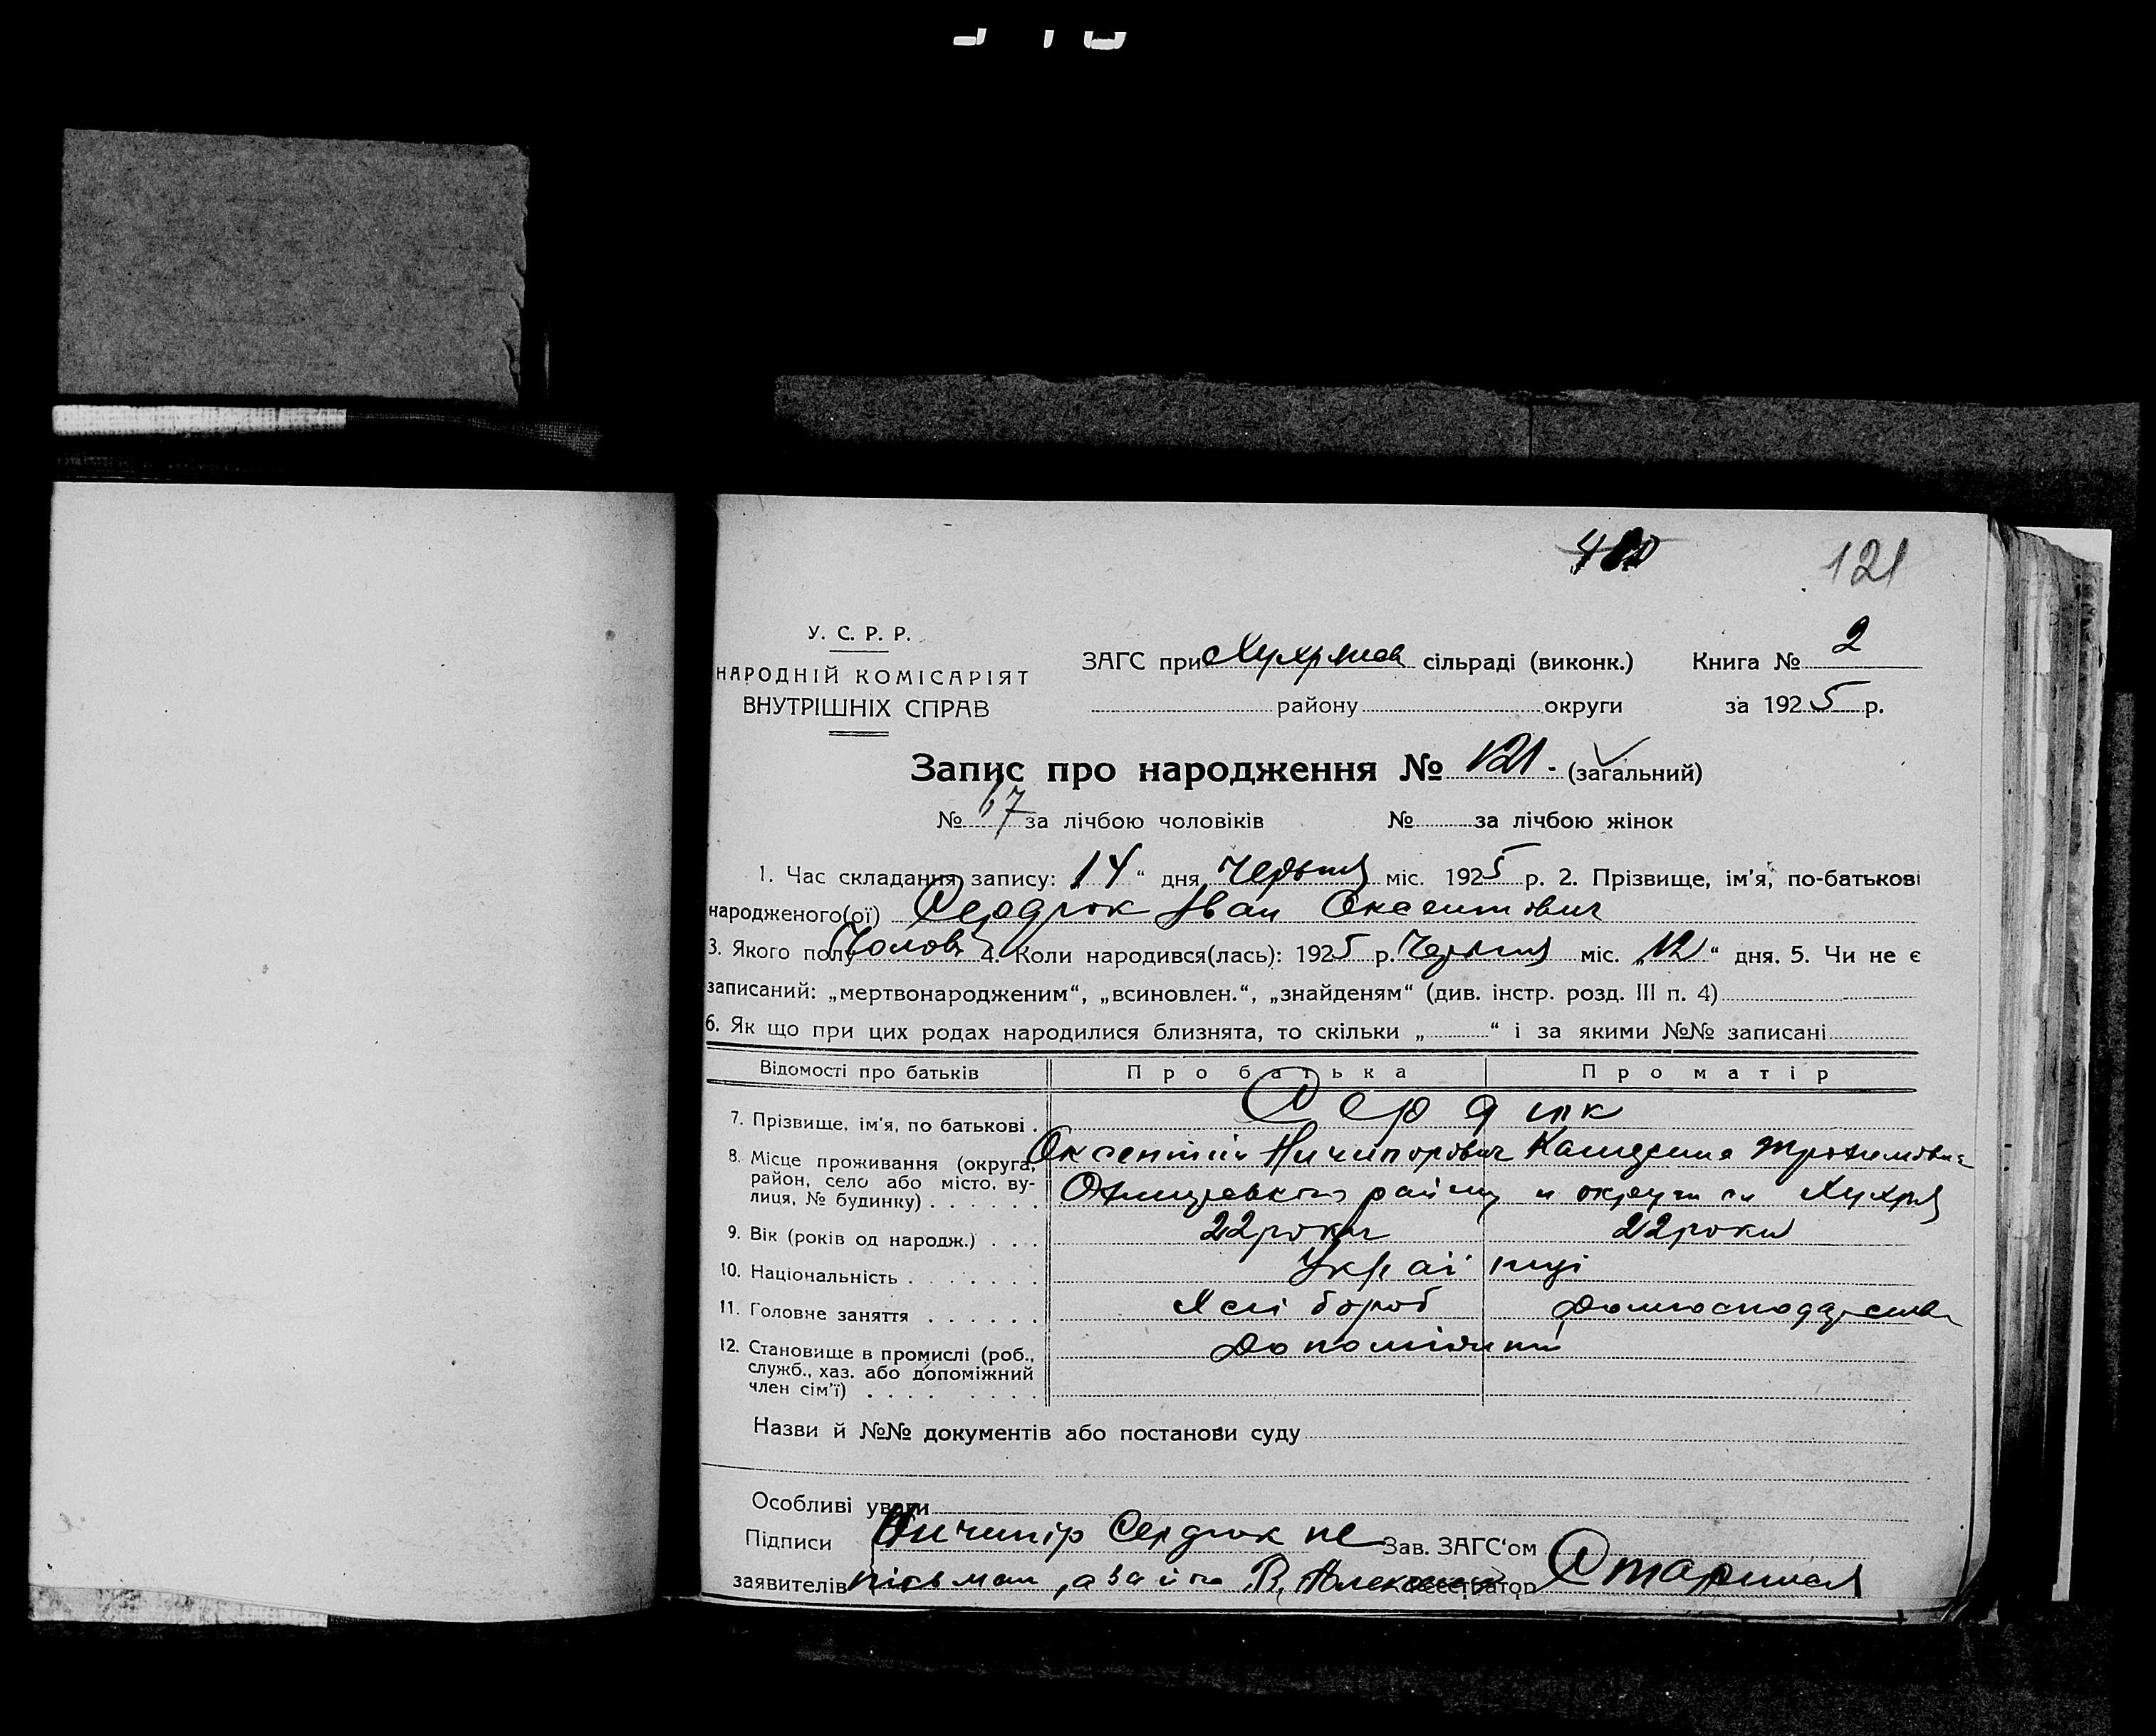 121
У. С. Р. Р.
НАРОДНІЙ КОМІСАРІЯТ
ВНУТРІШНІХ СПРАВ
ЗАГС при Хухрянск сільраді (виконк.) Книга № 2
району округи за 1925 р.
Запис про народження № 121 - (загальний)
№ 67 за лічбою чоловіків № за лічбою жінок
1. Час складання запису: „14“ дня Червня міс. 1925 р. 2. Прізвище, ім'я, по-батькові
народженого(ої) Сердюк Іван Оксентович
3. Якого полу Чолов. 4. Коли народився(лась): 1925 р. Червня міс. „12“ дня. 5. Чи не є
записаний: „мертвонародженим“, „всиновлен.“, „знайденям“ (див. інстр. розд. III п. 4)
6. Як що при цих родах народилися близнята, то скільки „ “ і за якими №№ записані
Відомості про батьків Про батька Про матір
7. Прізвище, ім'я, по батькові . Сердюк
Оксентій Ничипорович Трохимовна
8. Місце проживання (округа, район, село або місто, вулиця, № будинку) . . . . . . Охтирського району и округи си Хухря
9. Вік (років од народж.) . . . 22 роки 22 роки
10. Національність . . . . . . . Українці
11. Головне заняття . . . . . . Хлібороб Домогосподарства
12. Становище в промислі (роб., служб., хаз. або допоміжний член сім'ї) . . . . . . . . .
Назви й №№ документів або постанови суду
Особливі уваги
Підписи Ничипір Сердюк не Зав. ЗАГС'ом
заявителів письмен, а за його Реєстратор